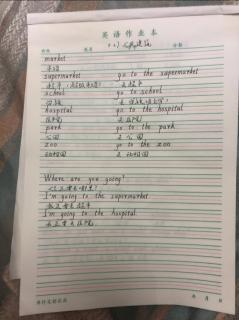 英语作业本
班级 姓名 分数
market
市场
supermarket go to the supermarket
超市 去超市
school go to school
学校
hospital go to the hospital
医院 去医院
park go to the park
公园 去公园
zoo go to the zoo
动物园 去动物园
Where are you going?
你正要去哪里?
I'm going to the supermarket.
我正要去超市
I'm going to the hospital.
我正要去医院.
年 月 日